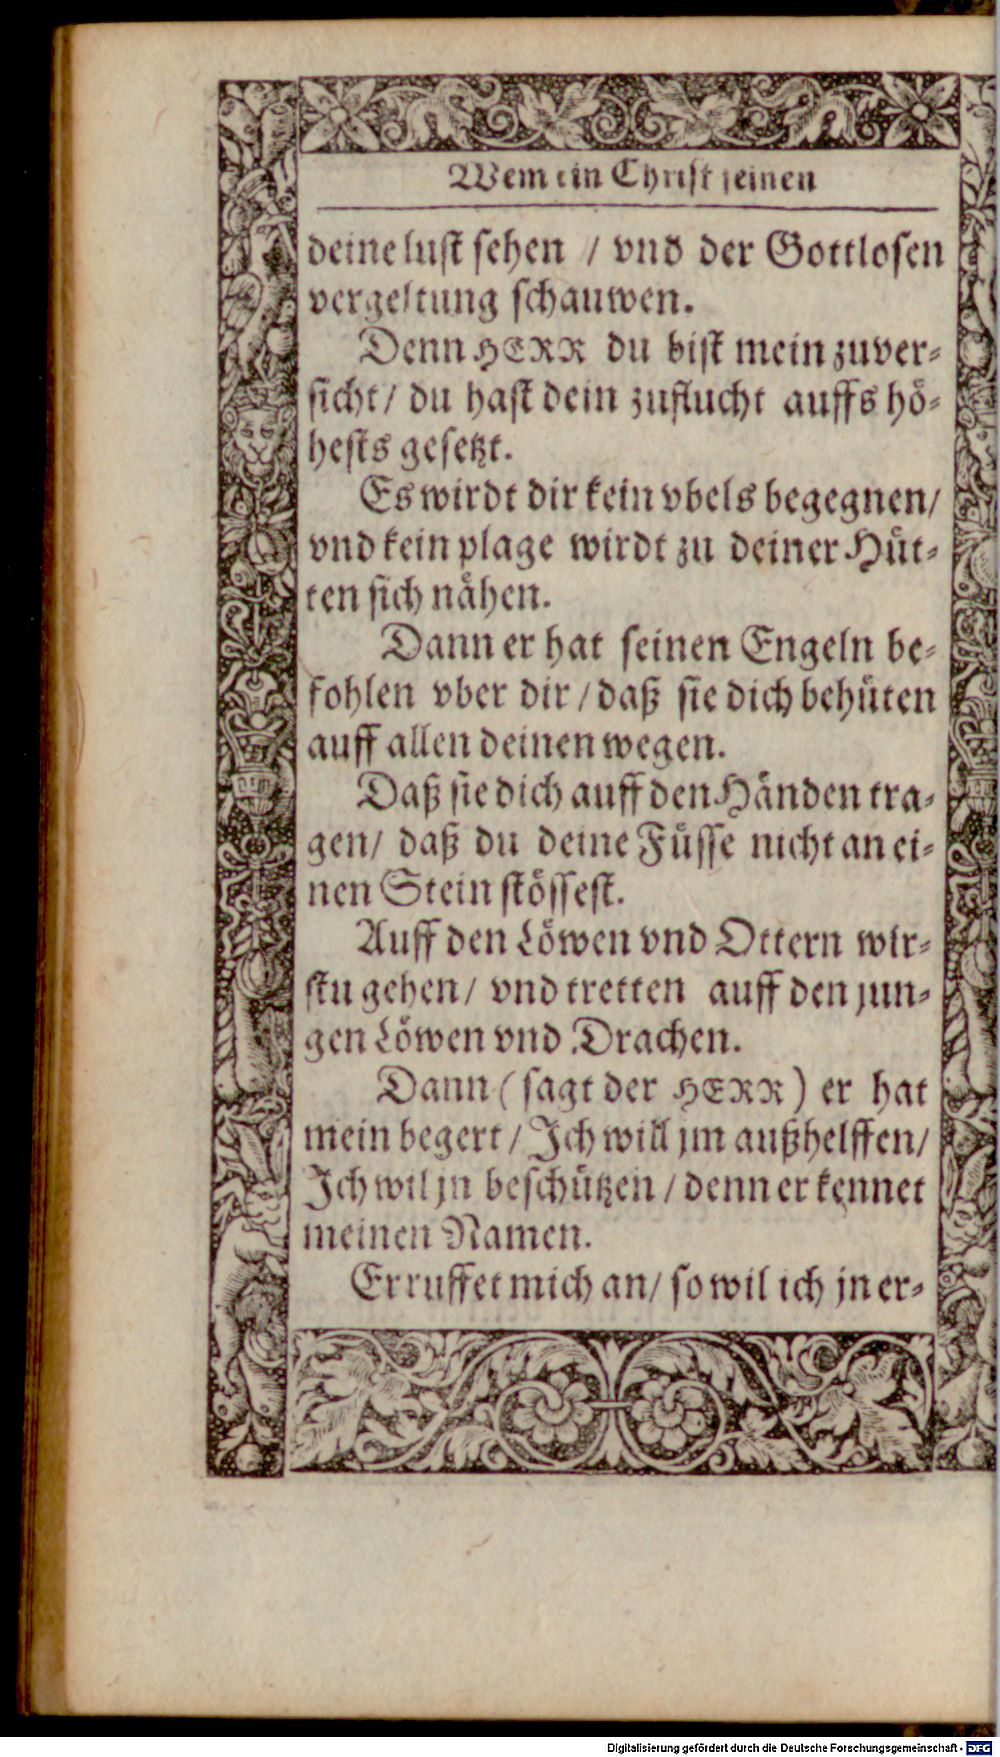 Wem ein Christ seinen
deine lust sehen / vnd der Gottlosen
vergeltung schauwen.
Denn HERR du bist mein zuver-
sicht / du hast dein zuflucht auffs hö-
hests gesetzt.
Es wirdt dir kein vbels begegnen /
vnd kein plage wirdt zu deiner Hüt-
ten sich nähen.
Dann er hat seinen Engeln be-
fohlen vber dir / daß sie dich behüten
auff allen deinen wegen.
Daß sie dich auff den Händen tra-
gen / daß du deine Füsse nicht an ei-
nen Stein stössest.
Auff den Löwen vnd Ottern wir-
stu gehen / vnd tretten auff den jun-
gen Löwen vnd Drachen.
Dann ( sagt der HERR ) er hat
mein begert / Ich will jm außhelffen /
Ich wil jn beschützen / denn er kennet
meinen Namen.
Er ruffet mich an / so wil ich jn er-
Digitalisierung gefördert durch die Deutsche Forschungsgemeinschaft - DFG